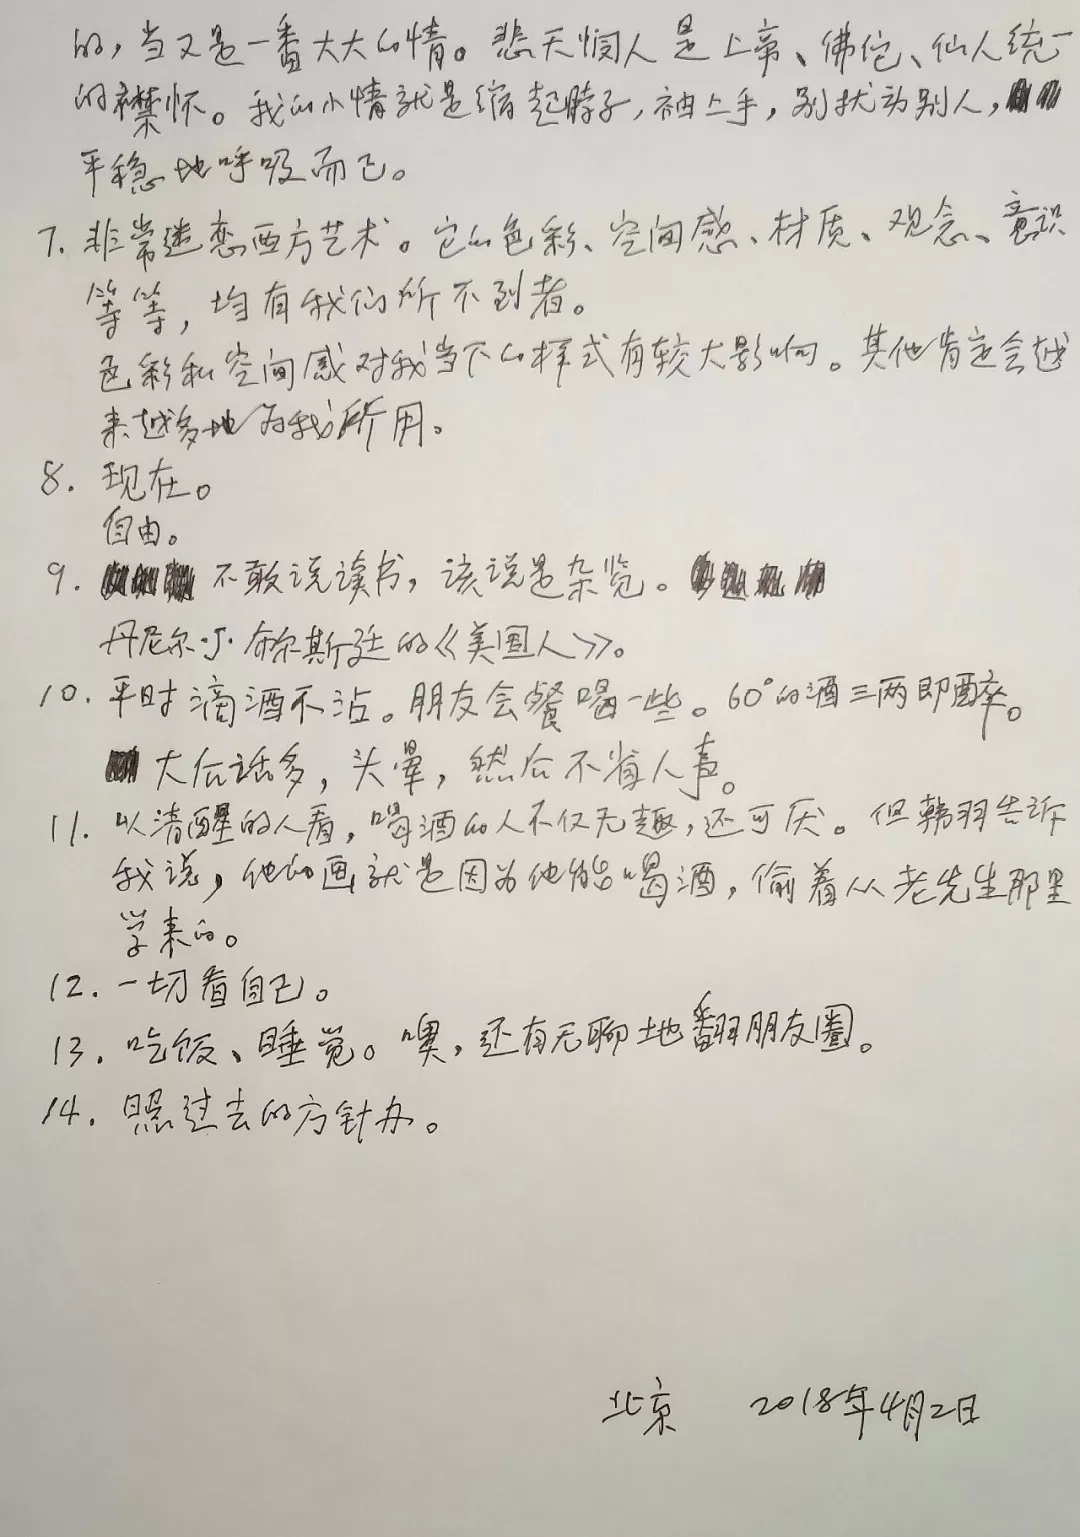 的，当又是一番大大的情。悲天悯人是上帝、佛佗、仙人统一
的襟怀。我的小情就是缩起脖子，袖上手，别扰动别人，
平稳地呼吸而已。
7. 非常迷恋西方艺术。它的色彩、空间感、材质、观念、意识
等等，均有我们所不到者。
色彩和空间感对我当下的样式有较大影响。其他肯定会越
来越多地为我所用。
8. 现在。
自由。
9. 不敢说读书，该说是杂览。
丹尼尔·J·布尔斯廷的《美国人》。
10. 平时滴酒不沾。朋友会餐喝一些。60°的酒三两即醉。
大后话多，头晕，然后不省人事。
11. 以清醒的人看，喝酒的人不仅无趣，还可厌。但韩羽告诉
我说，他的画就是因为他能喝酒，偷着从老先生那里
学来的。
12. 一切看自己。
13. 吃饭、睡觉。噢，还有无聊地翻朋友圈。
14. 照过去的方针办。
北京 2018年4月2日